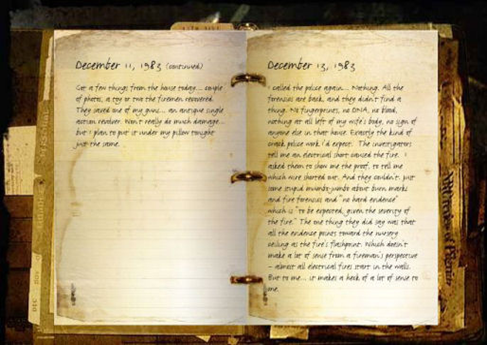 December 11, 1983 (continued)
Got a few things from the house today... couple
of photos, a toy or two the firemen recovered.
They saved one of my guns... an antique single
action revolver. Won't really do much damage...
but I plan to put it under my pillow tonight
just the same.
December 13, 1983
I called the police again... Nothing. All the
forensics are back, and they didn't find a
thing. No fingerprints, no DNA, no blood,
nothing at all left of my wife's body, no sign of
anyone else in that house. Exactly the kind of
crack police work I'd expect. The investigators
tell me an electrical short caused the fire. I
asked them to show me the proof, to tell me
which wire shorted out. And they couldn't. just
some stupid mumbo-jumbo about burn marks
and fire forensics and "no hard evidence"
which is "to be expected, given the severity of
the fire." The one thing they did say was that
all the evidence points toward the nursery
ceiling as the fire's flashpoint. Which doesn't
make a lot of sense from a fireman's perspective
- almost all electrical fires start in the walls.
But to me... it makes a heck of a lot of sense to
me.